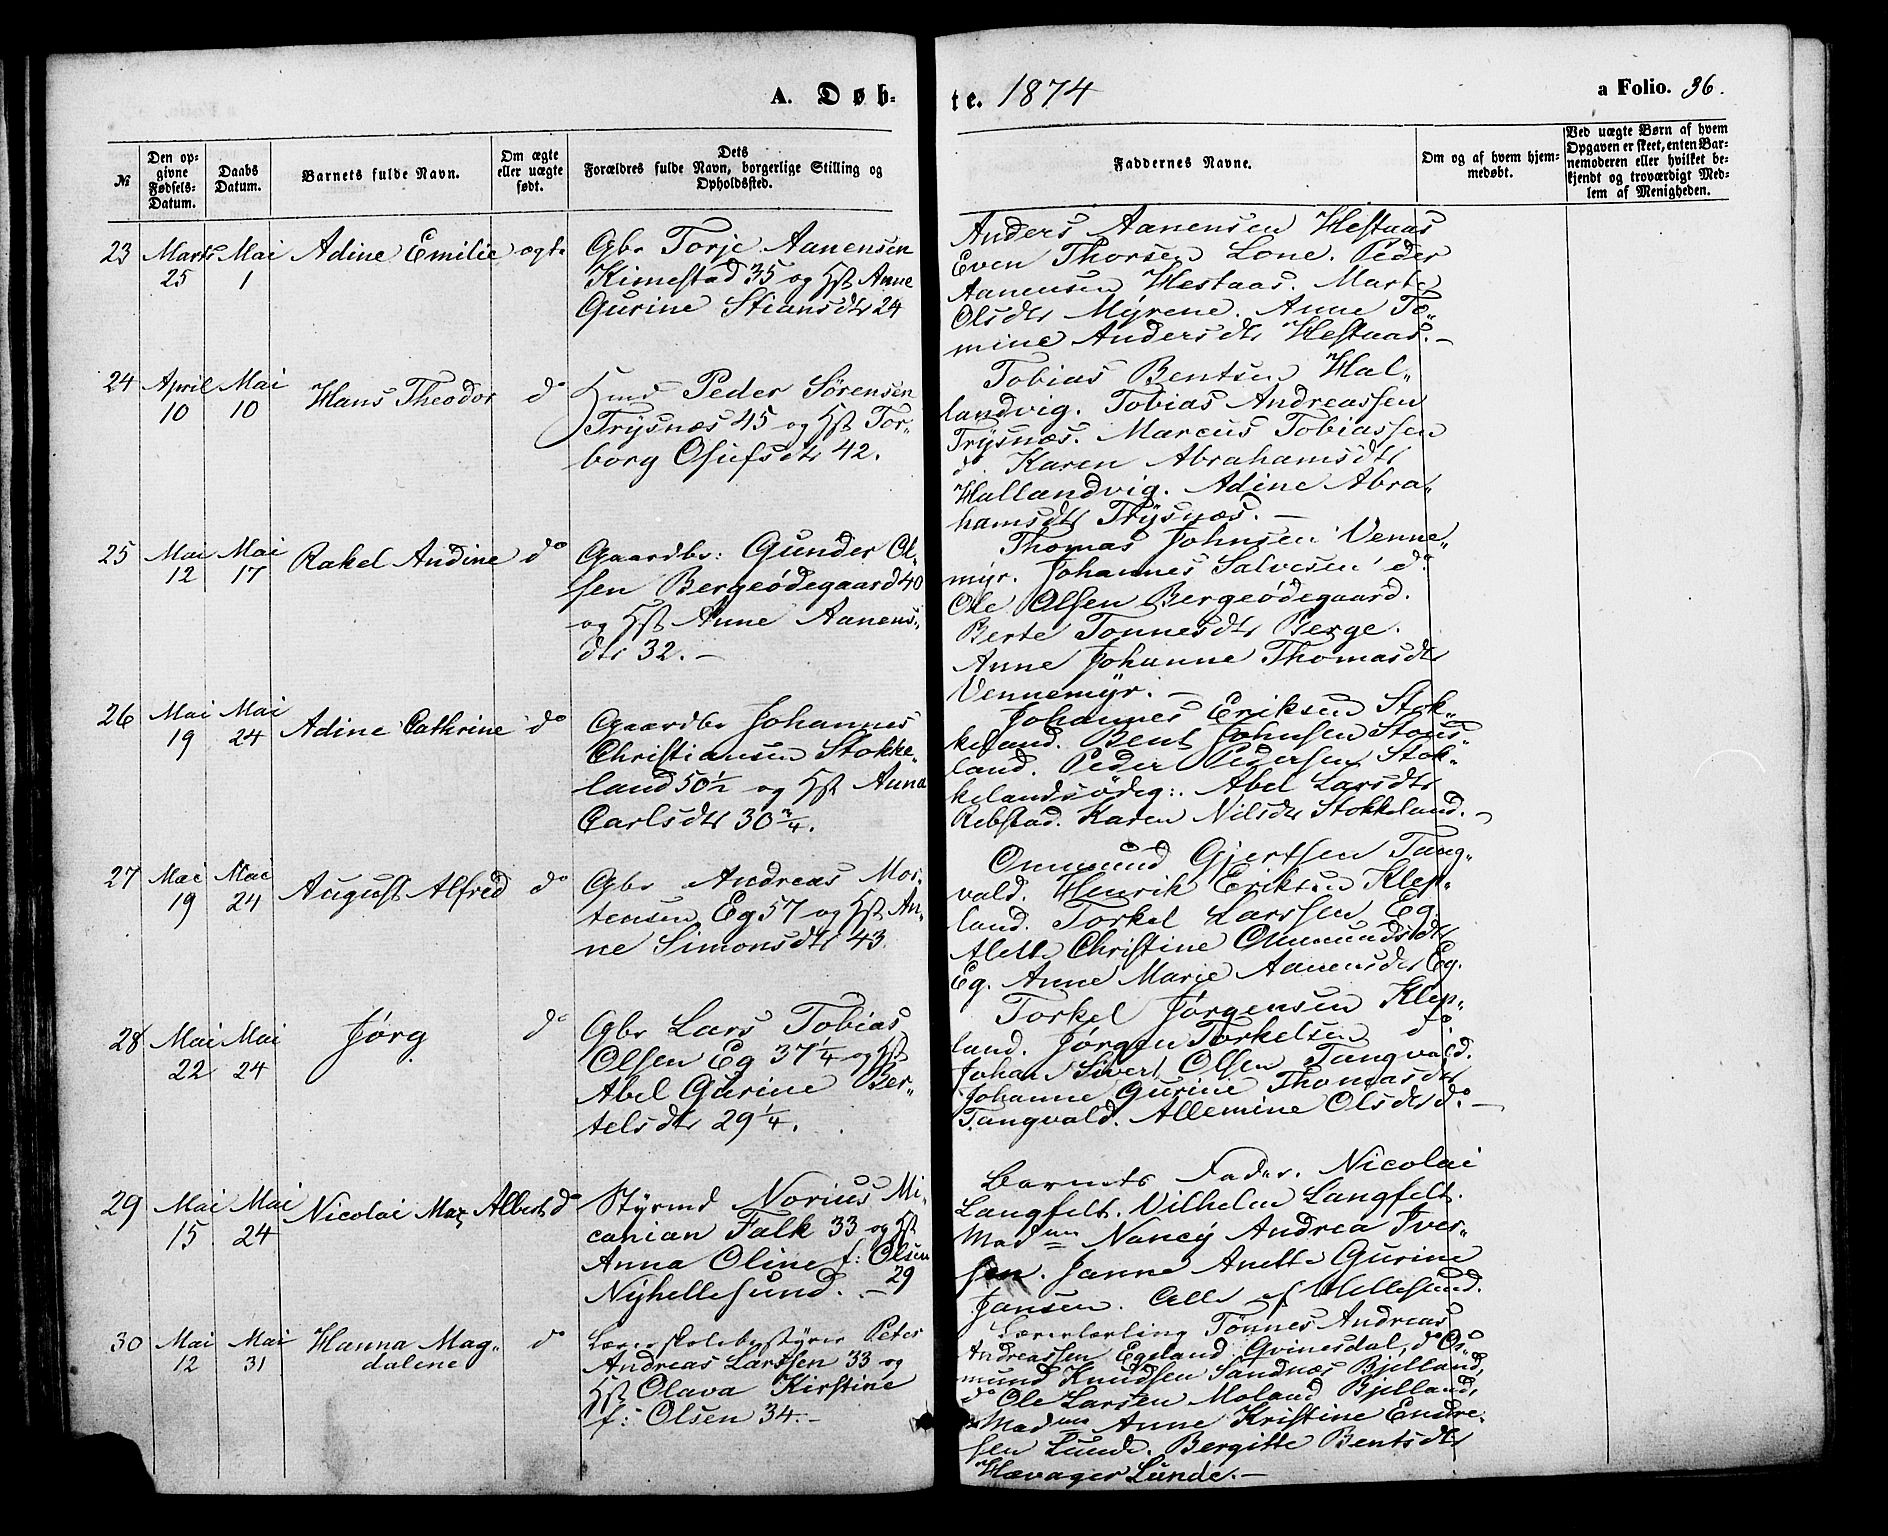 A. Døb-
te. 1874
a Folio. 36.
№
Den op-
givne
Fødsels-
Datum.
Daabs
Datum.
Barnets fulde Navn.
Om ægte
eller uægte
født.
Dets
Forældres fulde Navn, borgerlige Stilling og
Opholdsted.
Faddernes Navne.
Om og af hvem hjem-
medøbt.
Ved uægte Børn af hvem
Opgaven er skeet, enten Bar-
nemoderen eller hvilket be-
kjendt og troværdigt Med-
lem af Menigheden.
23 Marts 25 Mai 1 Adine Emilie ægte
Gbr Torje Aanensen
Kimestad 35 og Hst Anne
Gurine Stiansdtr 24
Anders Aanensen Hestaas
Even Thorsen Lone. Peder
Aanensen Hestaas. Marte
Olsdtr Myrene. Anne To-
mine Andersdtr Hestaas.-
24 April 10 Mai 10 Hans Theodor do
Hmd Peder Sørensen
Trysnæs 45 og Hst Tor-
borg Osufsdtr 42.
Tobias Bentsen Hal-
landvig. Tobias Andreassen
Trysnæs. Marcus Tobiassen
do. Karen Abrahamsdtr
Hallandvig. Adine Abra-
hamsdtr Trysnæs.-
25 Mai 12 Mai 17 Rakel Andine do
Gaardbr: Gunder Ol-
sen Bergeødegaard 40
og Hst Anne Aanens-
dtr 32.-
Thomas Johnsen Venne-
myr. Johannes Salvesen do
Ole Olsen Bergeødegaard.
Berte Tønnesdtr Berge.
Anne Johanne Thomasdtr
Vennemyr.-
26 Mai 19 Mai 24 Adine Cathrine do
Gaardbr Johannes
Christiansen Stokke-
land 50 1/2 og Hst Anna
Carlsdtr 30 3/4.
Johannes Eriksen Stok-
keland. Bent Johnsen Stous-
land. Peder Pedersen Stok-
kelandsødeg:. Abel Larsdtr
Rebstad. Karen Nilsdtr Stokkeland.-
27 Mai 19 Mai 24 August Alfred do
Gbr Andreas Mor-
tensen Eg 57 og Hst An-
ne Simonsdtr 43.
Ommund Gjertsen Tang-
vald. Henrik Eriksen Klep-
land. Torkel Larssen Eg.
Alette Christine Ommundsdtr
Eg. Anne Marie Aanensdtr Eg.
28 Mai 22 Mai 24 Jørg do
Gbr Lars Tobias
Olsen Eg 37 1/4 og Hst
Abel Gurine Ber-
telsdtr 29 1/4.
Torkel Jørgensen Klep-
land. Jørgen Torkelsen do.
Johan Sivert Olsen Tangvald.
Johanne Gurine Thomasdtr
Tangvald. Allemine Olsdtr do.-
29 Mai 15 Mai 24 Nicolai Max Albert do
Styrmd Norius Mi-
canian Falk 33 og Hst
Anna Oline f: Olsen
Nyhellesund.- 29
Barnets Fader. Nicolai
Langfelt. Vilhelm Langfelt.
Madme Nancy Andrea Iver-
sen. Janne Anette Gurine
Jansen. Alle af Hellesund.
30 Mai 12 Mai 31 Hanna Mag-
dalene do
Lærerskolebestyrer Peter
Andreas Larssen 33 og
Hst Olava Kirstine
f: Olsen 34.-
Lærerlærling Tønnes Andreas
Andreassen Egeland Qvinesdal, do Os-
mund Knudsen Sandnæs Bjelland,
do Ole Larsen Moland Bjelland,
Madme Anne Kristine Endre-
sen Lunde. Bergitte Bentsdtr
Hævager Lunde.-